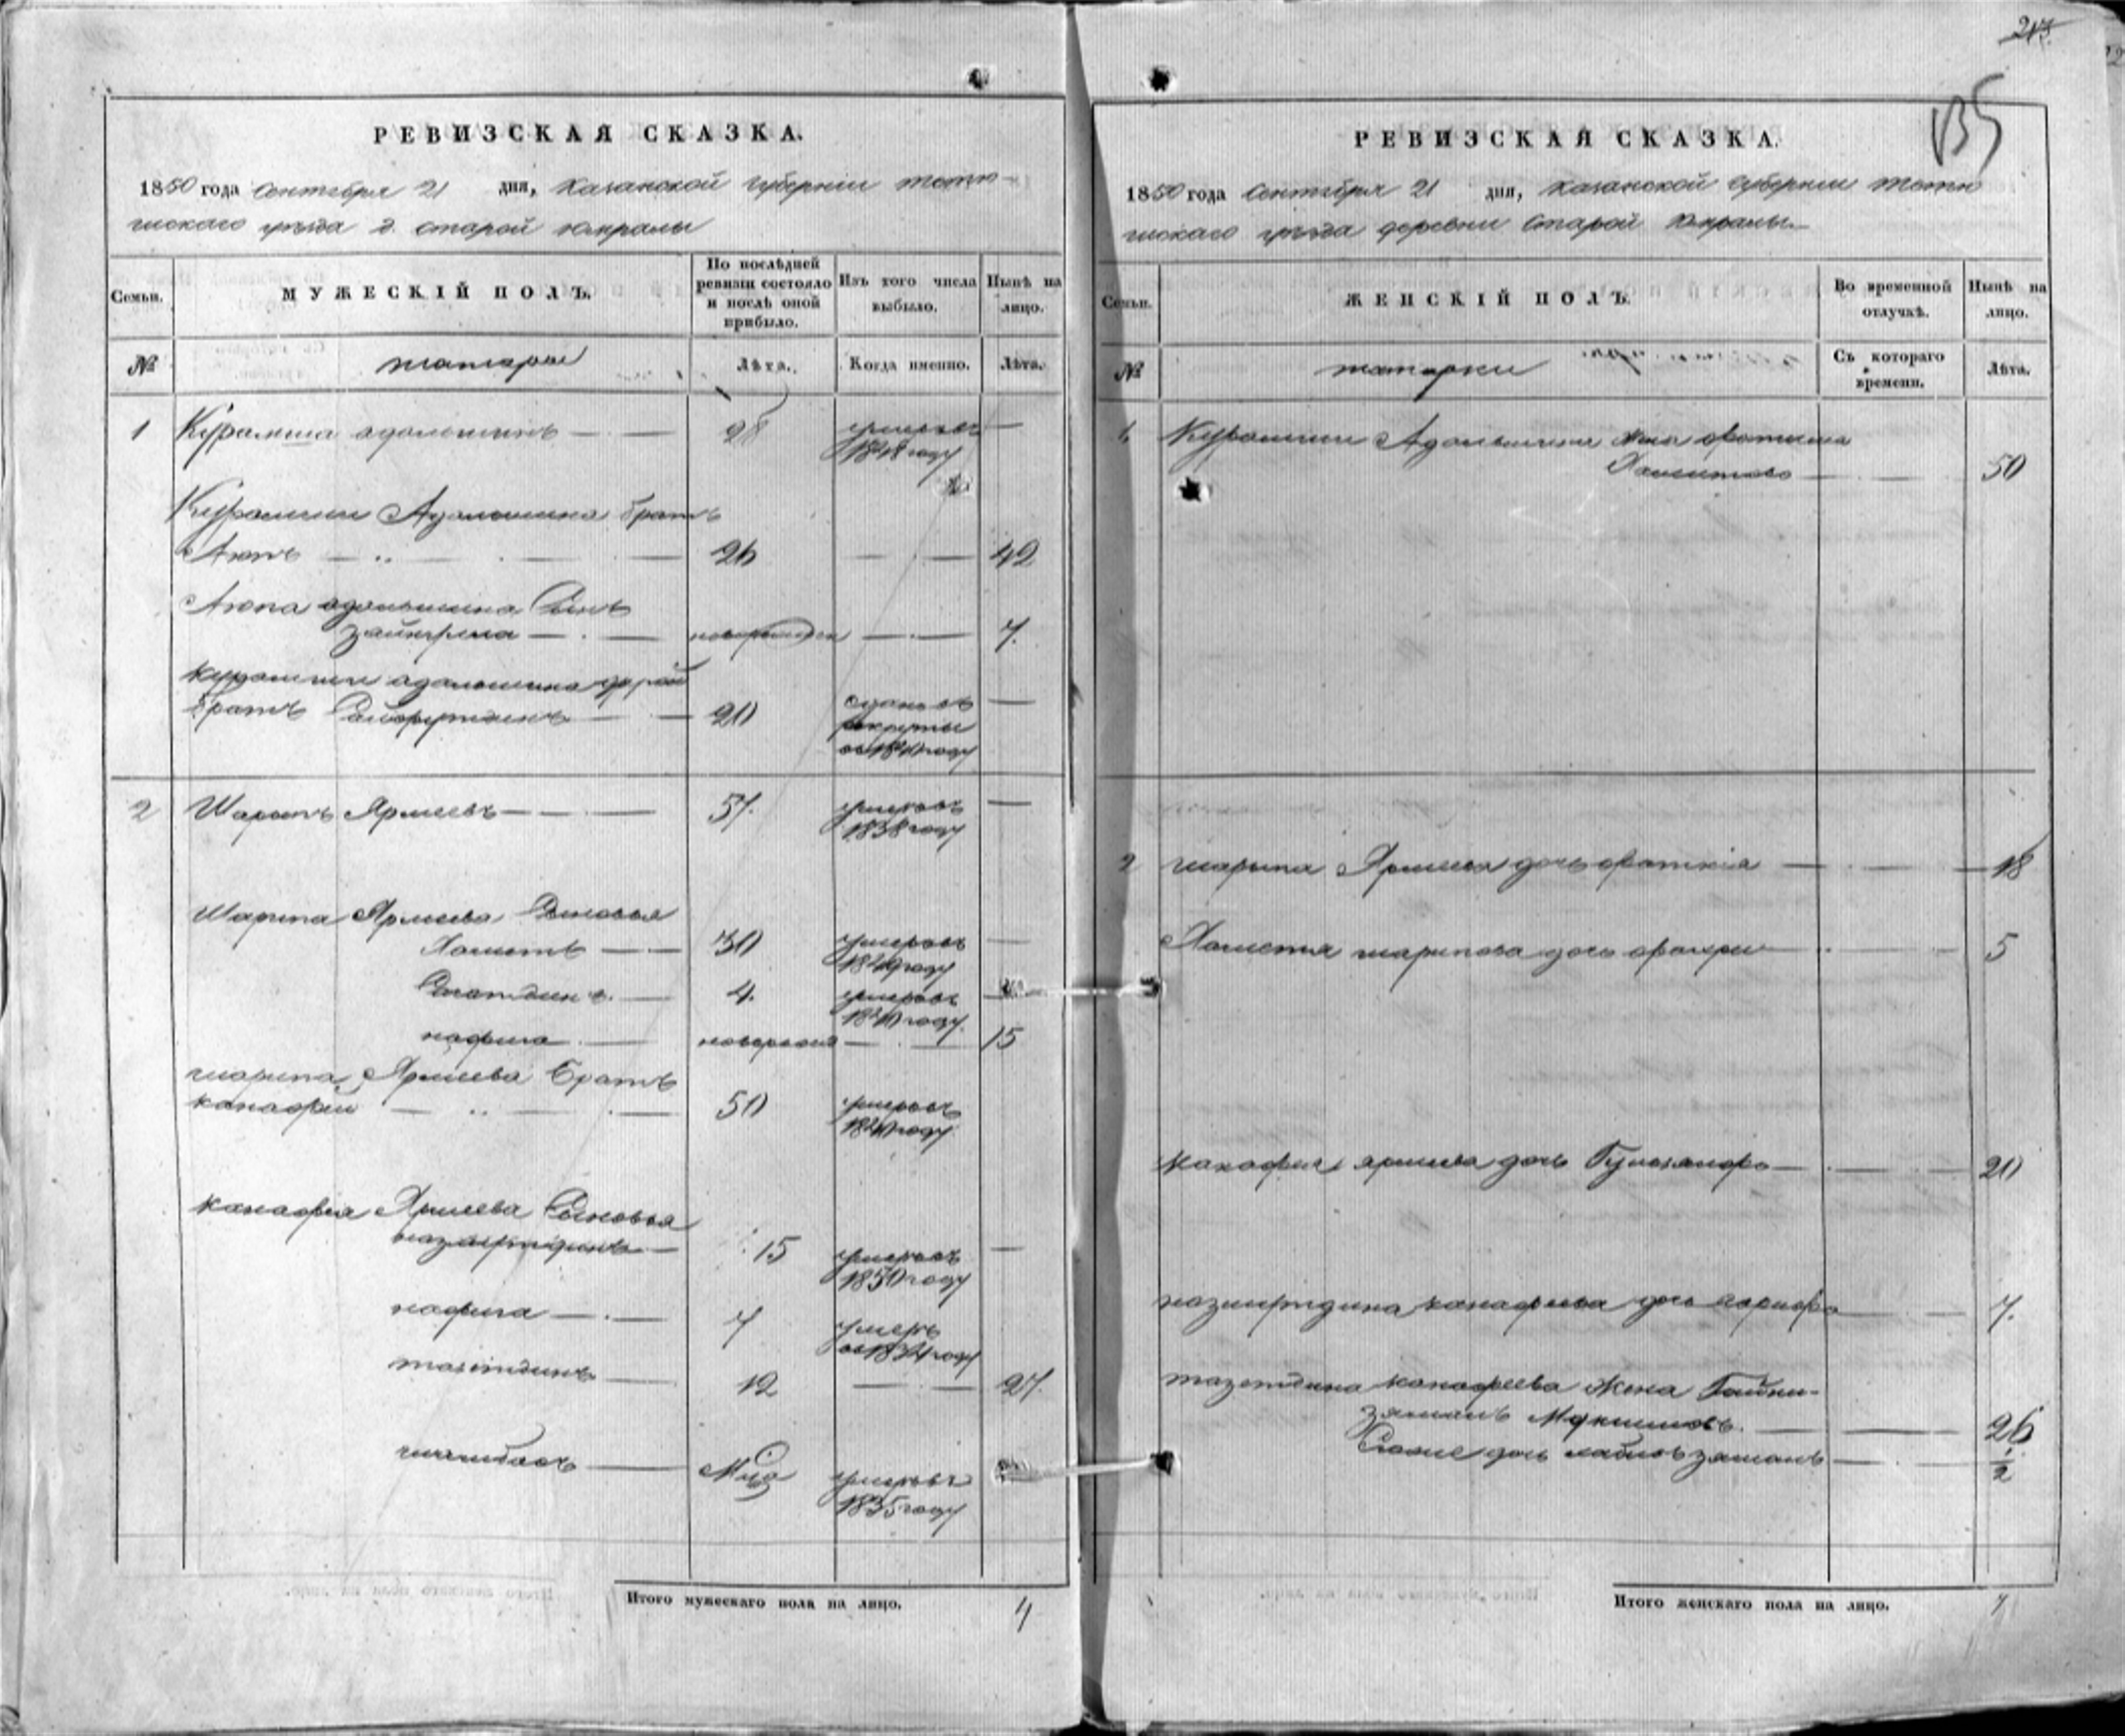 213.
135
РЕВИЗСКАЯ СКАЗКА.
1850 года Сентября 21 дня, Казанской губерніи тетю-
шскаго уѣзда д. старой юмралы
Семьи.
МУЖЕСКІЙ ПОЛЪ.
По послѣдней ревизіи состояло и послѣ оной прибыло.
Изъ того числа выбыло.
Нынѣ на лицо.
№
татары
Лѣта.
Когда именно.
Лѣта.
1 Курамша адельшинъ 28 умеръ въ
1848 году
Курамши Адельшина братъ
Аюпъ 26 42
Аюпа адельшина Сынъ
новорожден 7.
Курамши адельшина другой
братъ Сайфутдинъ 20 отданъ въ
рекруты
въ 1840 году
2 Шарыпъ Ярмеевъ 57. умеръ въ
1838 году
Шарыпа Ярмеева Сыновья
Хаметъ 30 умеръ въ
1849 году
4. умеръ въ
1840 году
нафига новорожд 15
шарыпа Ярмеева братъ
канафей 50 умеръ въ
1840 году
канафея Ярмеева Сыновья
15 умеръ въ
1850 году
нафига 7 умеръ
въ 1834 году
тазетдинъ 12 27.
Мца умеръ въ
1835 году
Итого мужескаго пола на лицо. 4
РЕВИЗСКАЯ СКАЗКА.
1850 года Сентября 21 дня, Казанской губерніи тетю
шскаго уѣзда деревни Старой Юмралы.
Семьи.
ЖЕНСКІЙ ПОЛЪ.
Во временной отлучкѣ.
Нынѣ на лицо.
№
татарки
Съ котораго времени.
Лѣта.
1 Курамши Адельшина жена фатыма
Хаметова 50
2 шарыпа Ярмеева дочь 18
Хаметя шарыпова дочь 5
Канафея ярмеева дочь 20
канафеева дочь 7.
тазетдина канафеева Жена Бадыи-
зямалъ 26
дочь 1/2
Итого женскаго пола на лицо. 7